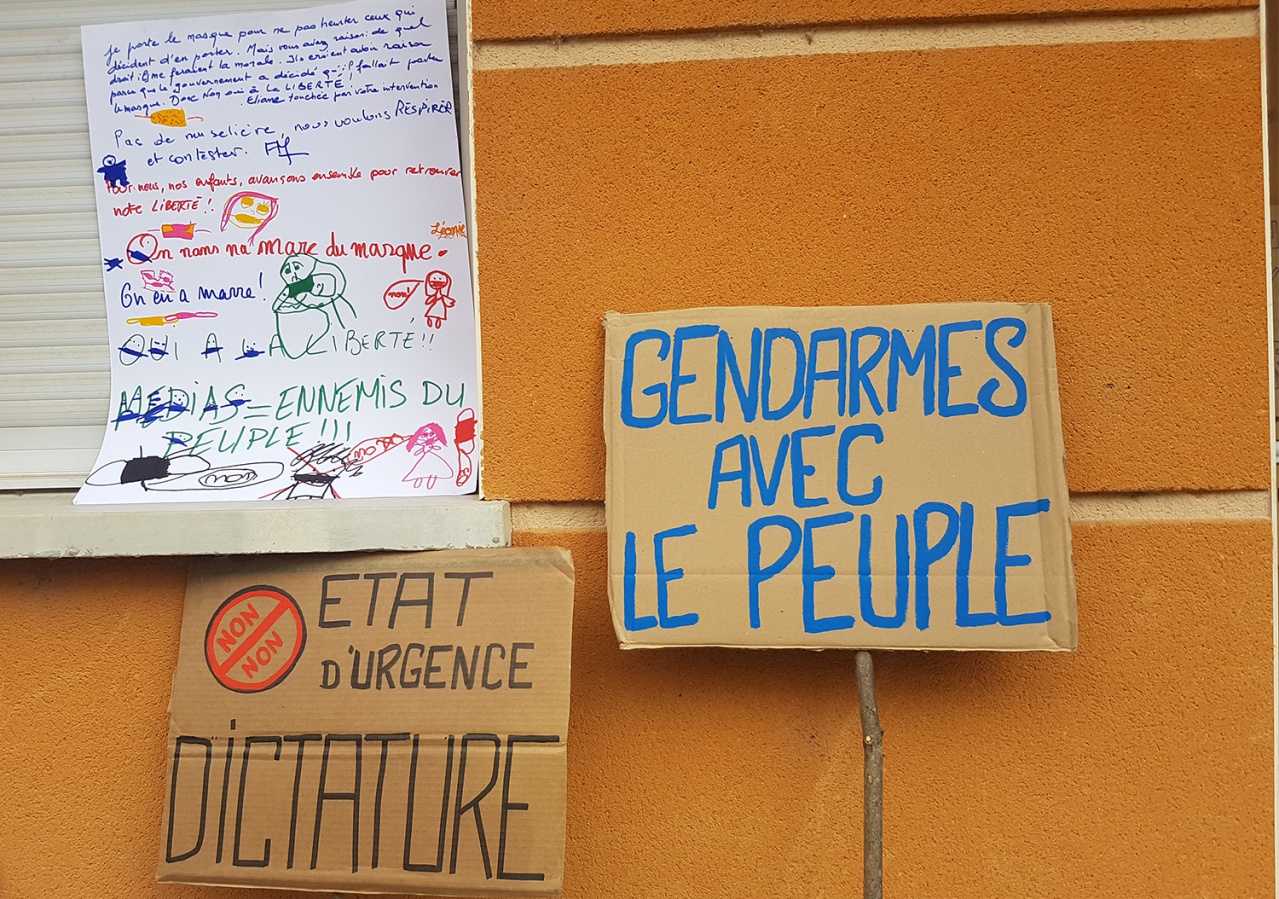 Je porte le masque pour ne pas heurter ceux qui
décident d'en porter. Mais vous avez raison: de quel
droit me feraient la morale. Ils croient avoir raison
parce que le gouvernement a décidé qu'il fallait porter
le masque. Donc Non oui à la LIBERTÉ!
Eliane touchée par votre intervention
Pas de muselière, nous voulons RESPIRER
et contester.
Pour nous, nos enfants, avançons ensemble pour retrouver
notre LIBERTÉ!
Léonie
On nans na marc du masque.
On en a marre!
non!
OUI A LA LIBERTÉ!!
MEDIAS = ENNEMIS DU
PEUPLE!!!
non
non
GENDARMES
AVEC
LE PEUPLE
NON
NON
ETAT
D'URGENCE
DICTATURE